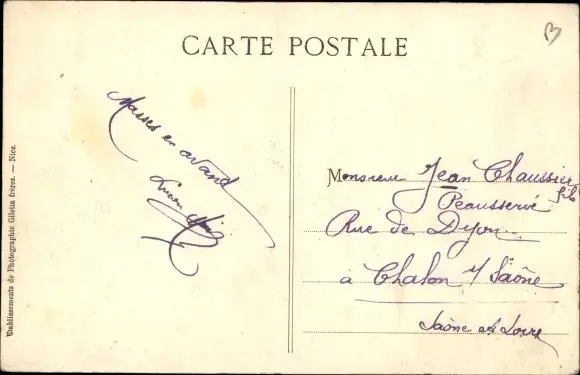 CARTE POSTALE
Masses en avant
Lucien
Monsieur Jean Chaussier
fils
Rue de Dijon
à Chalon s/ Saône
Saône et Loire
Etablissements de Photographie Giletta frères. — Nice.